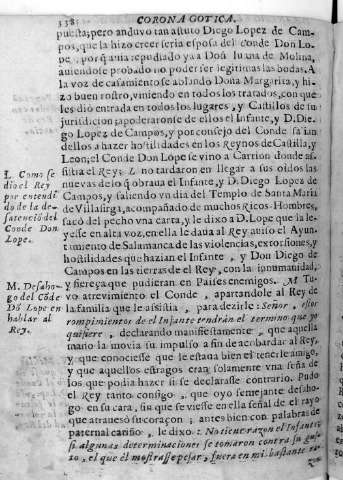 338 CORONA GOTICA.
puesta; pero anduvo tan astuto Diego Lopez de Cam-
pos, que la hizo creer seria esposa del Conde Don Lo-
pe, por q̃ avia repudiado ya a Doña Iuana de Molina,
auiendose probado no poder ser legitimas las bodas. A
la voz de casamiento se ablandò Doña Margarita, y hi-
zo buen rostro, viniendo en todos los tratados, con que
les diò entrada en todos los lugares, y Castillos de su
jurisdicion; apoderaronse de ellos el Infante, y D. Die-
go Lopez de Campos, y por consejo del Conde salian
dellos a hazer hostilidades en los Reynos de Castilla, y
Leon; el Conde Don Lope se vino a Carrion donde as-
sistia el Rey: L no tardaron en llegar a sus oìdos las
nuevas de lo q̃ obraua el Infante, y D. Diego Lopez de
Campos, y saliendo vn dia del Templo de Santa Maria
de Villasirga, acompañado de muchos Ricos-Hombres,
sacò del pecho vna carta, y le dixo a D. Lope que la le-
yesse en alta voz, en ella le daua al Rey auiso el Ayun-
timiento de Salamanca de las violencias, extorsiones, y
hostilidades que hazian el Infante, y Don Diego de
Campos en las tierras de el Rey, con la inhumanidad,
y fiereça que pudieran en Paises enemigos. M Tu-
vo atrevimiento el Conde, apartandole al Rey de
la familia que le assistia, para dezirle: Señor, estos
rompimientos de el Infante tendràn el termino que yo
quisiere, declarando manifiestamente, que aquella
mano la movia su impulso a fin de acobardar al Rey,
y que conociesse que le estaua bien el tenerle amigo,
y que aquellos estragos eran solamente vna seña de
los que podia hazer si se declarasse contrario. Pudo
el Rey tanto consigo, que oyò semejante desaho-
go en su cara, sin que se viesse en ella señal de el rayo
que atravesò su coraçon; antes bien con palabras de
paternal cariño, le dixo: No tiene razon el Infante;
si algunas determinaciones se tomaron contra su gus-
to, el que èl mostrasse pesar, fuera en mi bastante ra-
L. Como se
diò el Rey
por entendi
do de la de-
satenciõ del
Conde Don
Lope.
M. Desaho-
go del Cõde
Dõ Lope en
hablar al
Rey.